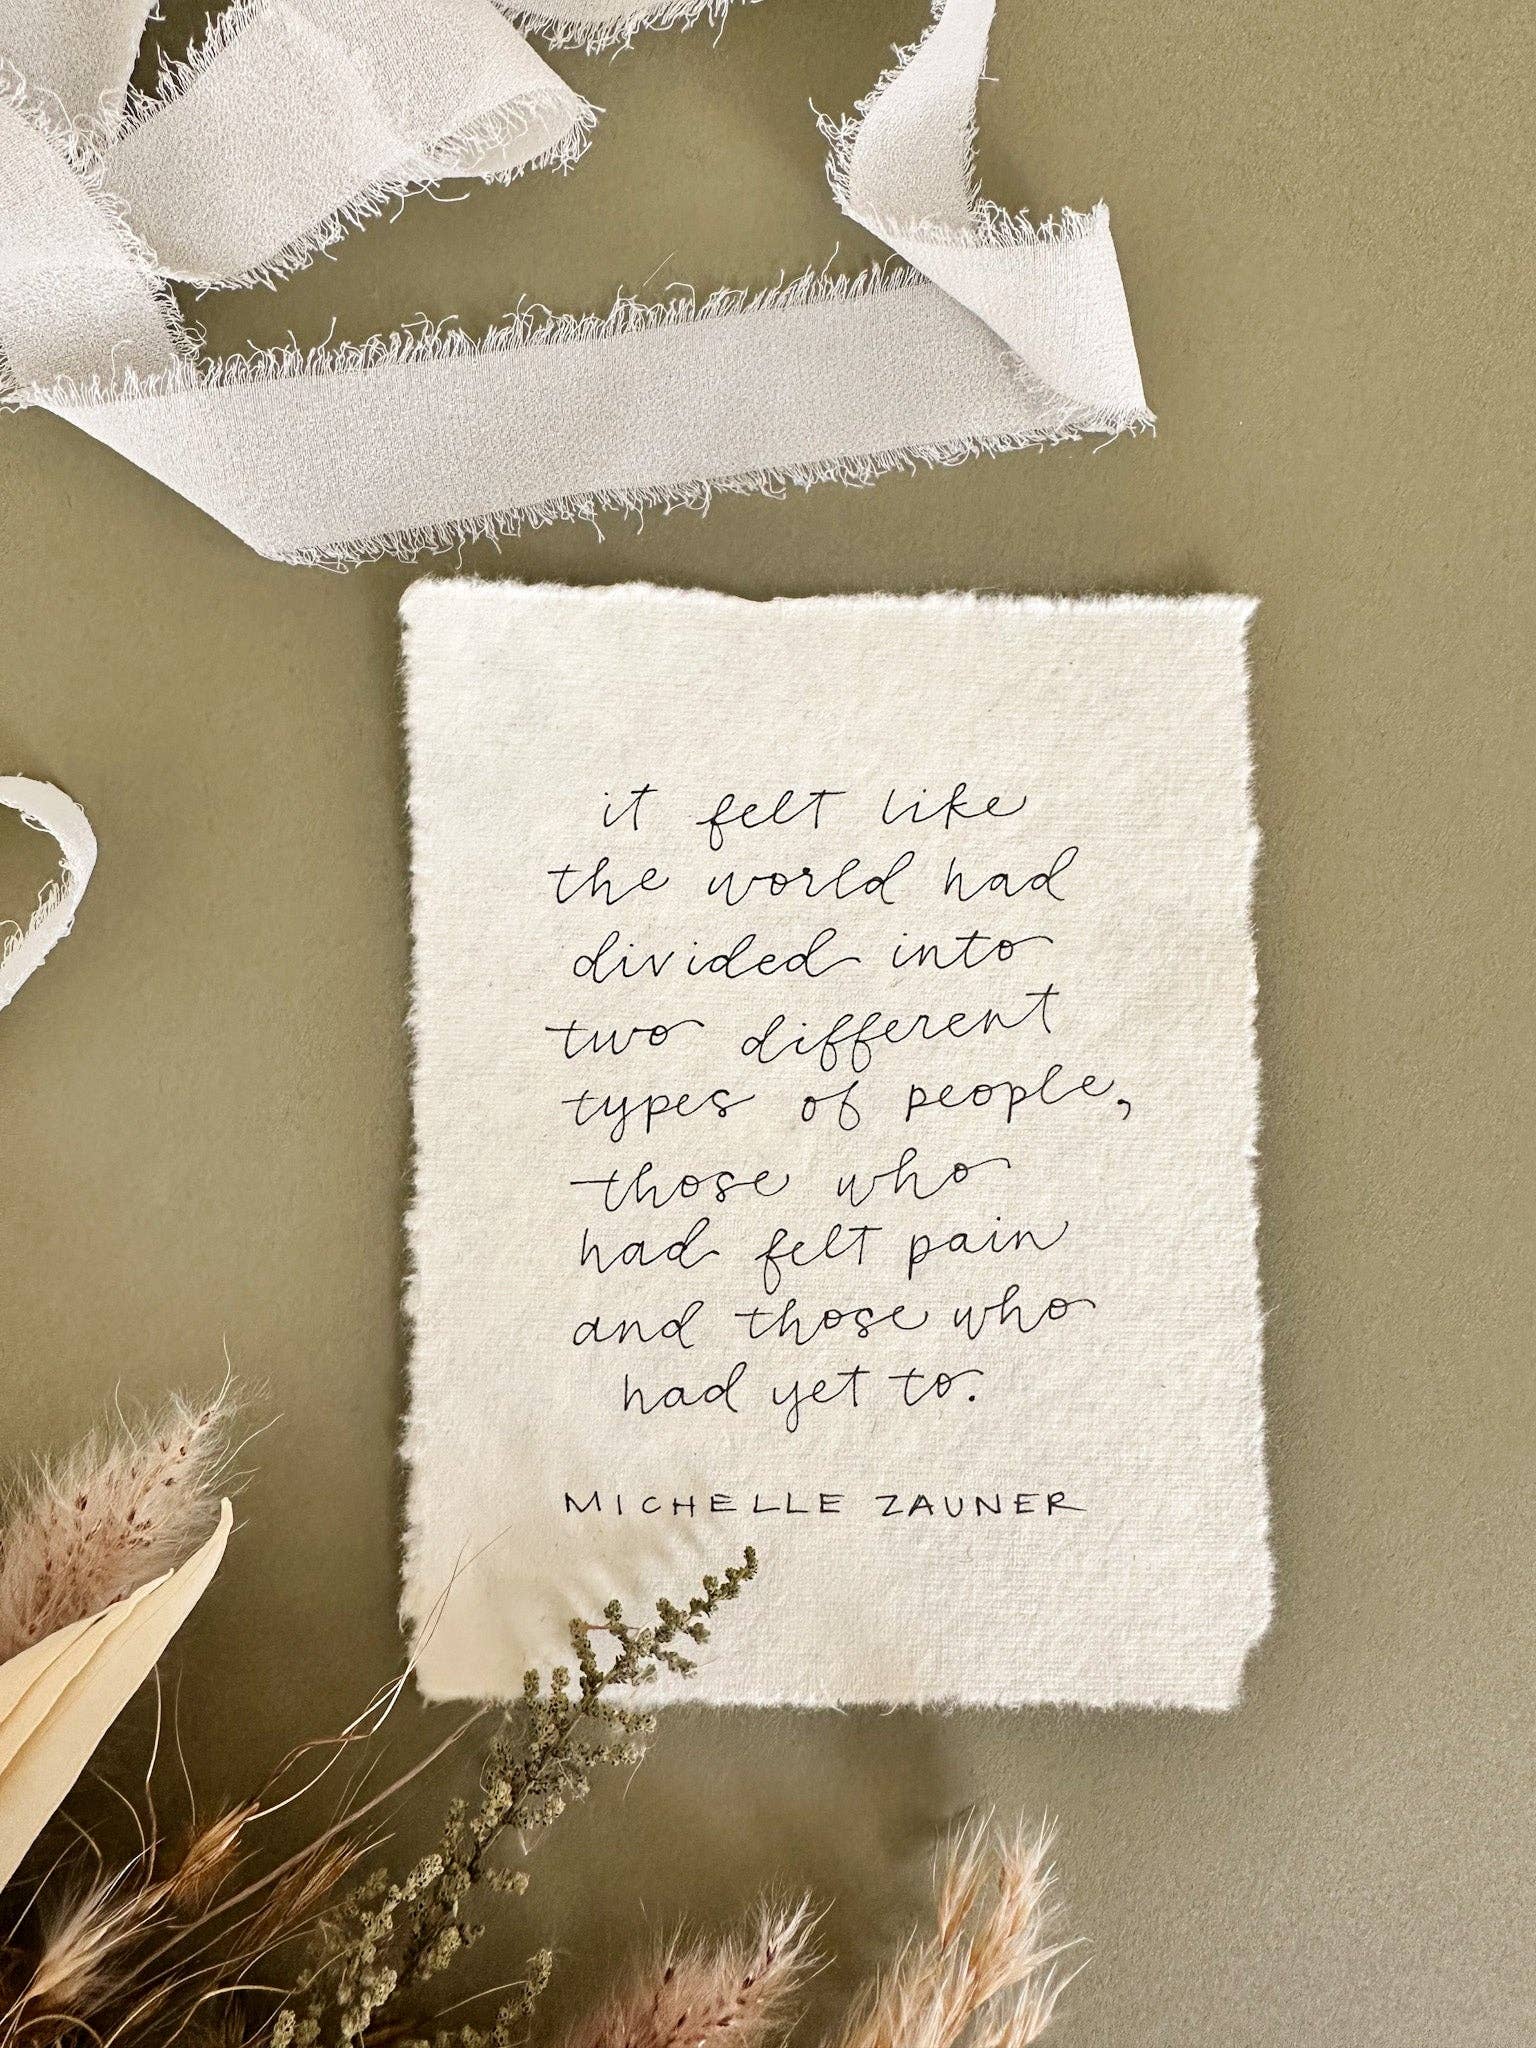 it felt like
the world had
divided into
two different
types of people,
those who
had felt pain
and those who
had yet to.
MICHELLE ZAUNER